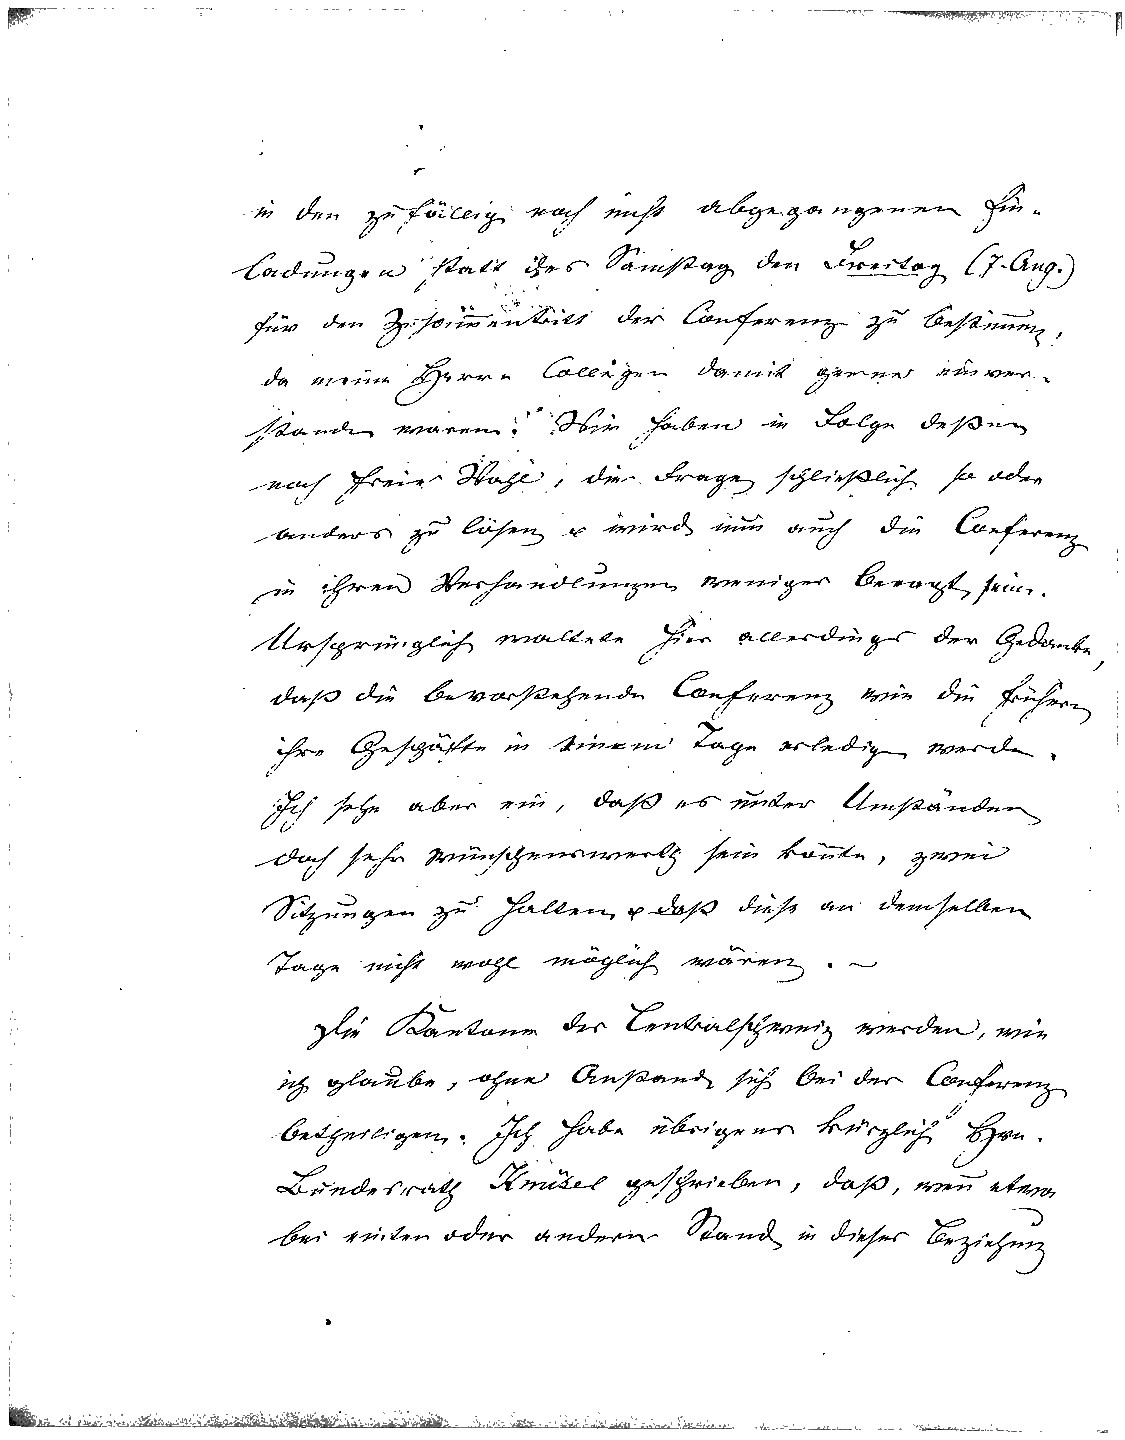 in den zufällig noch nicht abgegangenen Ein-
ladungen statt des Samstag den Freitag (7. Aug.)
für den Zusammentritt der Conferenz zu bestimmen,
da meine Herren Collegen damit gerne einver-
standen waren. Wir haben in Folge deßen
noch freie Wahl, die Frage schließlich so oder
anders zu lösen & wird nun auch die Conferenz
in ihren Verhandlungen weniger beengt sein.
Ursprünglich waltete hier allerdings der Gedanke,
daß die bevorstehende Conferenz wie die frühern
ihre Geschäfte in einem Tage erledigen werde.
Ich sehe aber ein, daß es unter Umständen
doch sehr wünschenswerth sein könnte, zwei
Sitzungen zu halten, & daß diese an demselben
Tage nicht wohl möglich wären. –
Die Kantone der Centralschweiz werden, wie
ich glaube, ohne Anstand sich bei der Conferenz
betheiligen. Ich habe übrigens kürzlich Hrn.
Bundesrath Knüsel geschrieben, daß, wenn etwa
bei einten oder andern Stand in dieser Beziehung